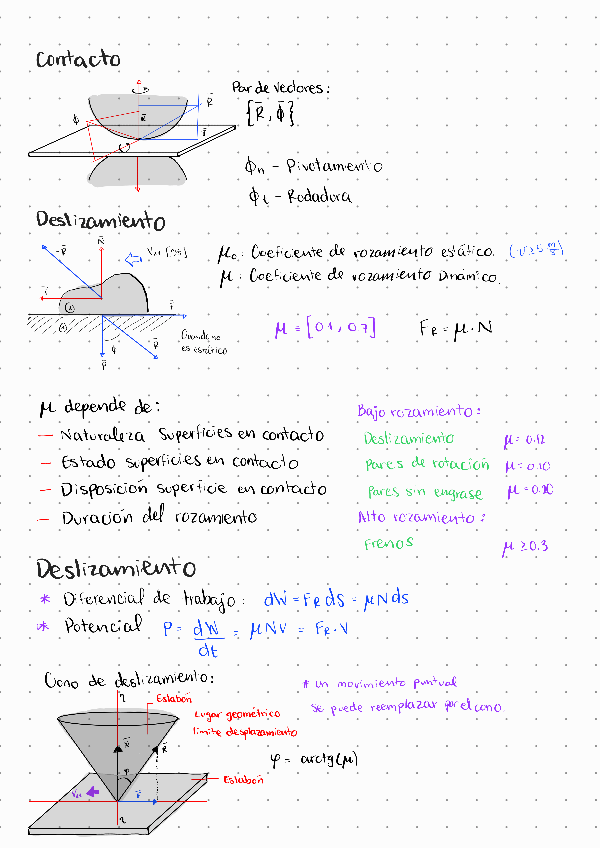 Contacto
Par de vectores:
{R̄, Φ̄}
Φ
R̄
R̄
T̄
Φn - Pivotamiento
Φt - Rodadura
Deslizamiento
μ₀: Coeficiente de rozamiento estático.
μ: Coeficiente de rozamiento Dinámico.
R̄
N̄
T̄
φ
R̄
Cuando no
es estático
μ = [0.1, 0.7]
F_R = μ·N
μ depende de:
— Naturaleza superficies en contacto
— Estado superficies en contacto
— Disposición superficie en contacto
— Duración del rozamiento
Bajo rozamiento:
Deslizamiento μ= 0.12
Pares de rotación μ= 0.10
Pares sin engrase μ= 0.20
Alto rozamiento:
Frenos μ ≥ 0.3
Deslizamiento
* Diferencial de trabajo: dW = F_R dS = μNds
* Potencial P = dW/dt = μNV = F_R·V
Cono de deslizamiento:
Eslabón
Lugar geométrico
límite desplazamiento
* un movimiento puntual
se puede reemplazar por el cono
φ = arctg(μ)
Eslabón